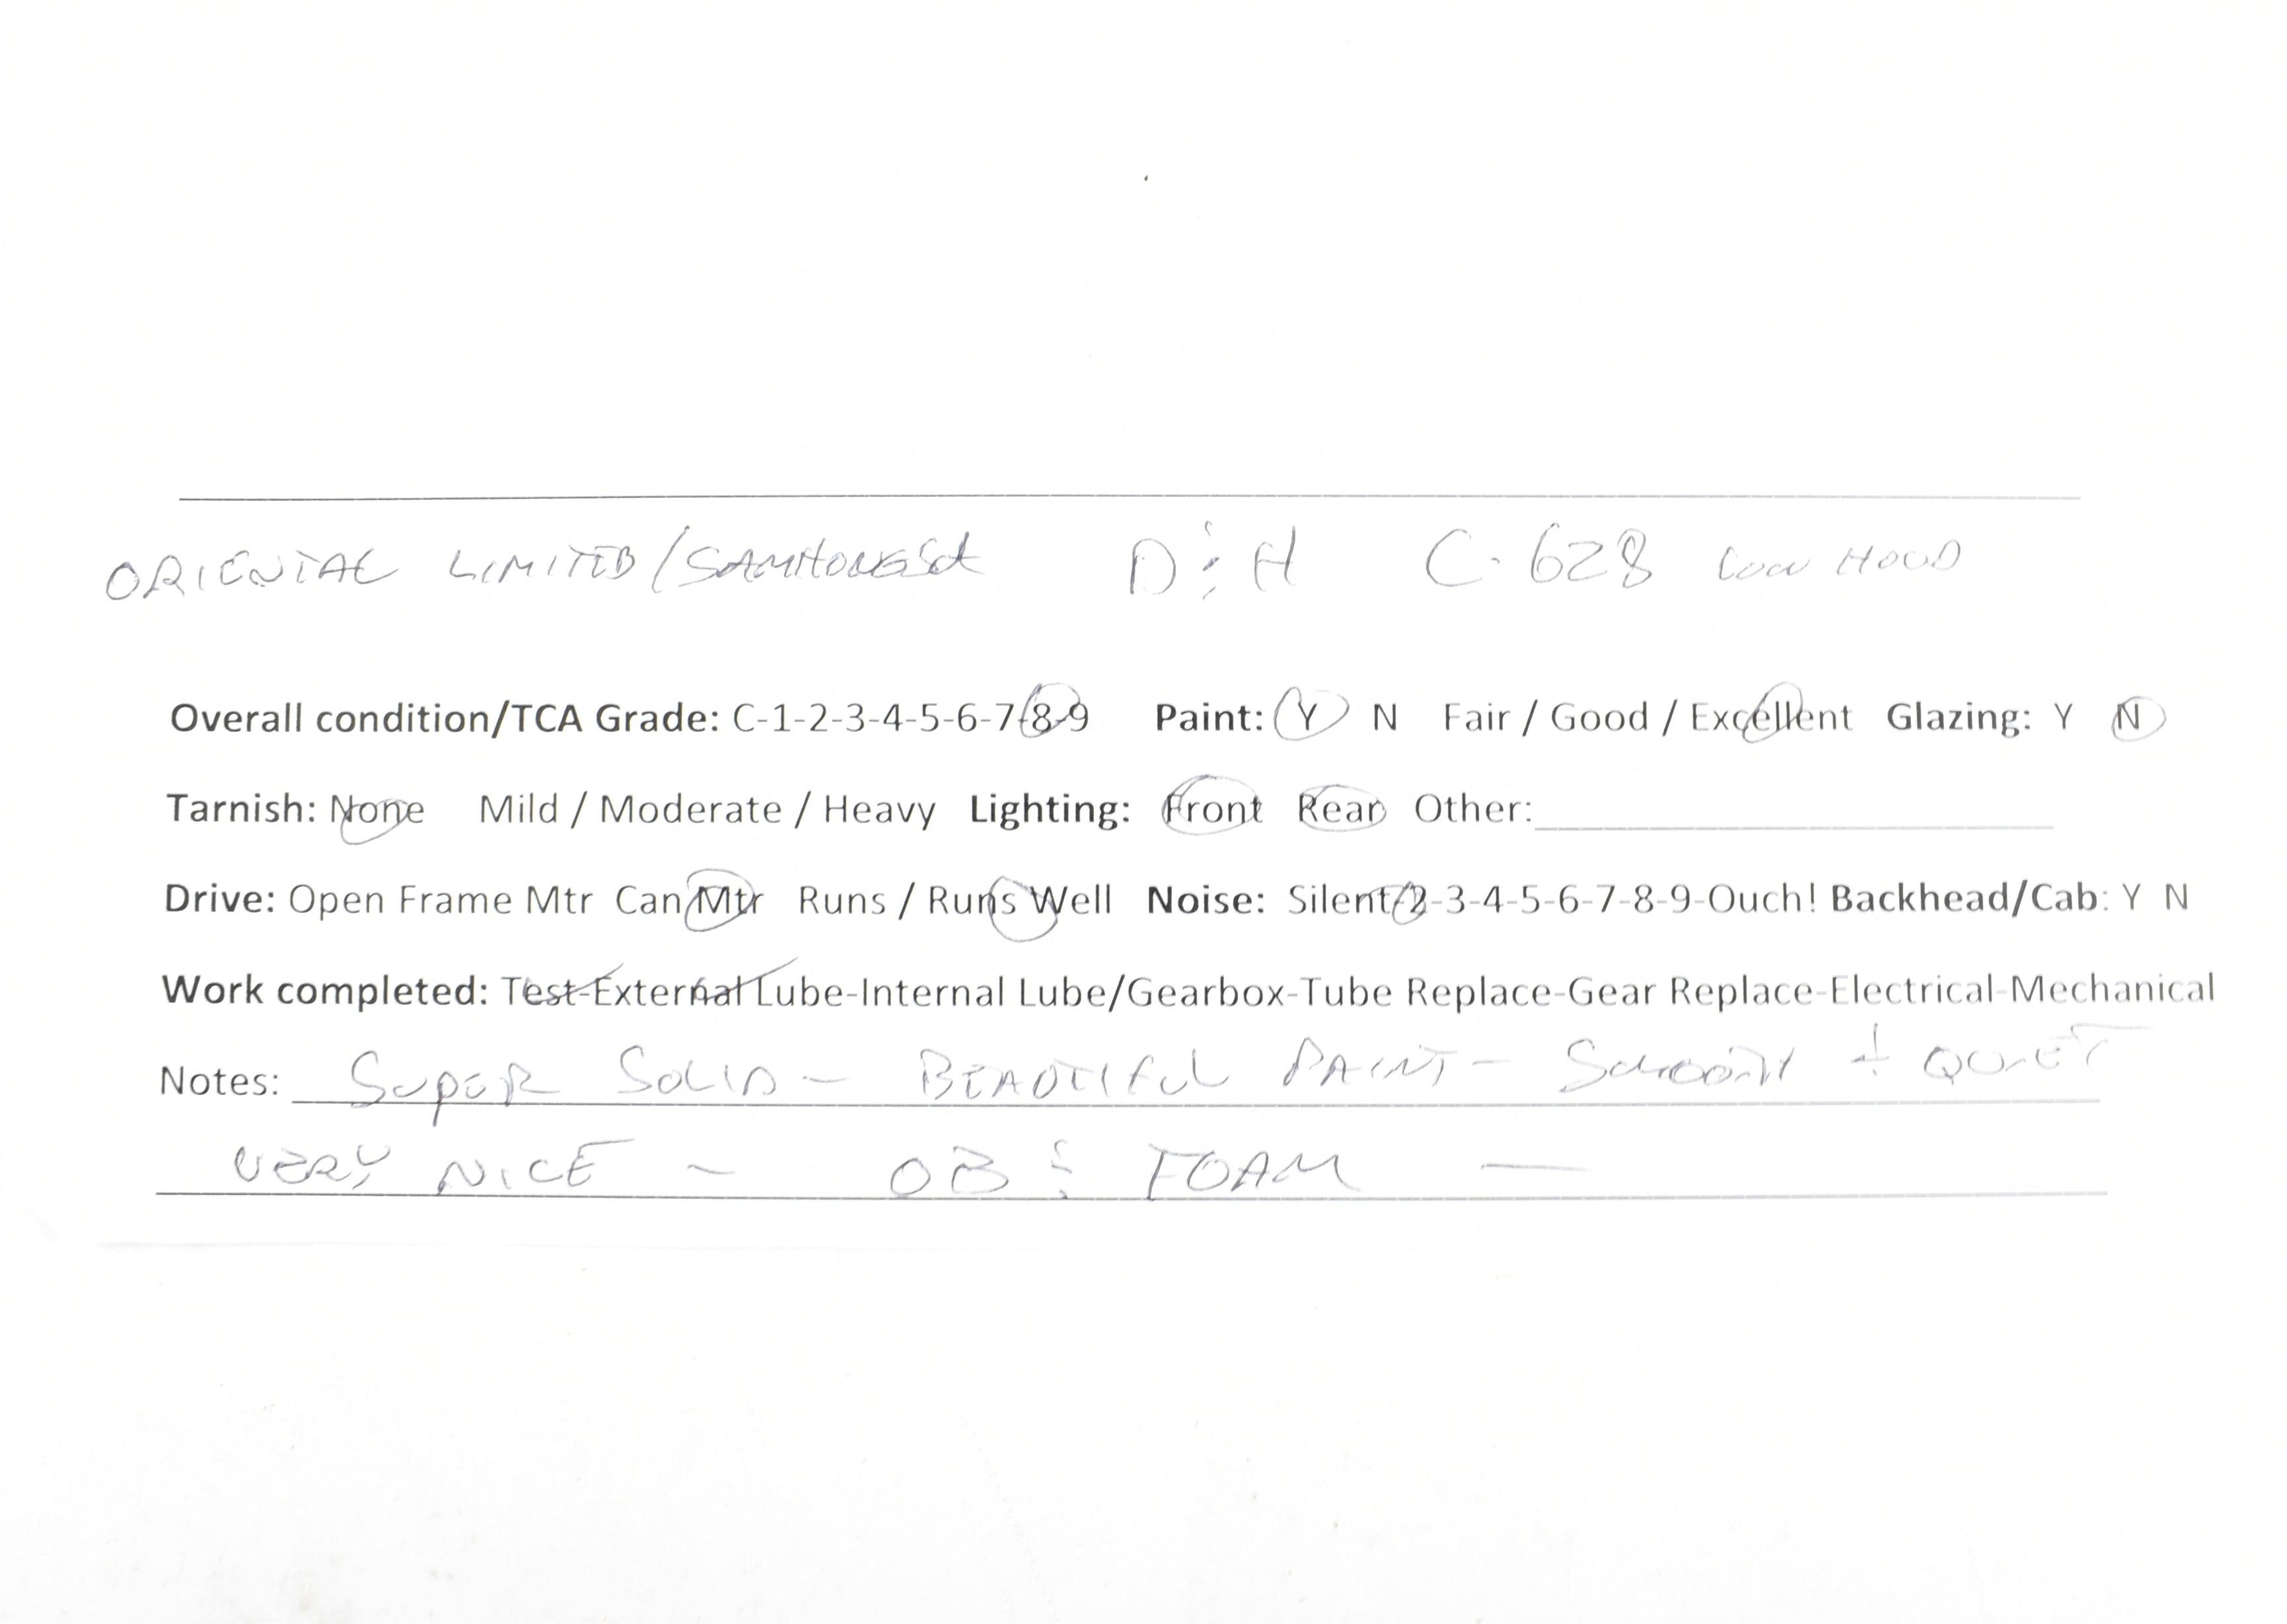 ORIENTAL LIMITED/SAMHONGSA D & H C-628 LOW HOOD
Overall condition/TCA Grade: C-1-2-3-4-5-6-7-8-9 Paint: Y N Fair / Good / Excellent Glazing: Y N
Tarnish: None Mild / Moderate / Heavy Lighting: Front Rear Other:
Drive: Open Frame Mtr Can Mtr Runs / Runs Well Noise: Silent-2-3-4-5-6-7-8-9-Ouch! Backhead/Cab: Y N
Work completed: Test-External Lube-Internal Lube/Gearbox-Tube Replace-Gear Replace-Electrical-Mechanical
Notes: SUPER SOLID - BEAUTIFUL PAINT - SMOOTH + QUIET
VERY NICE - OB & FOAM —